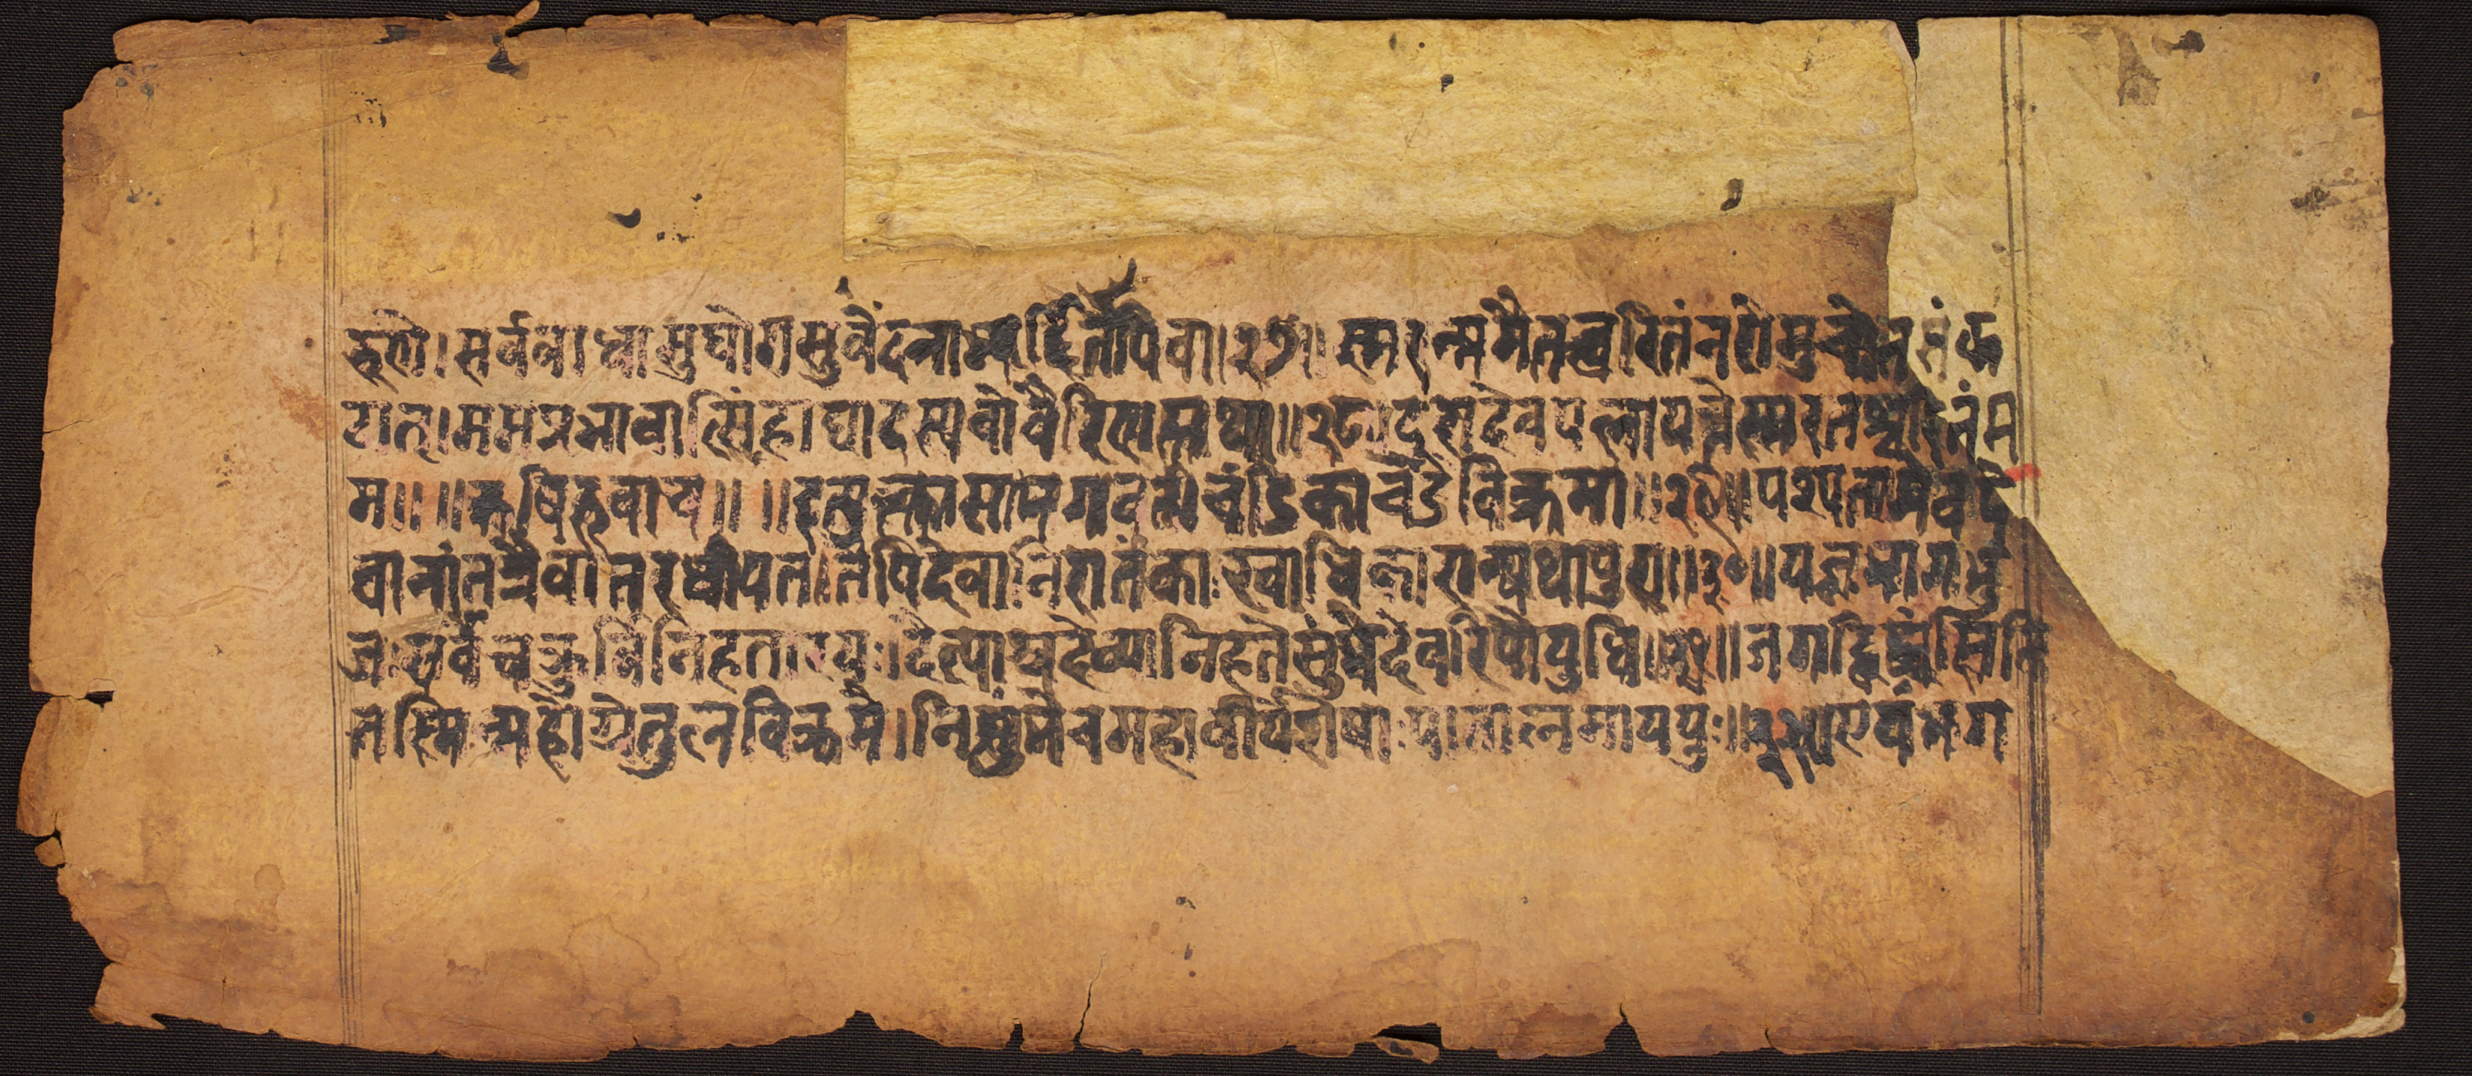 रुणे। सर्वबाधासु घोरासु वेदनाभ्यर्दितोपि वा॥२७॥ स्मरन्ममैतच्चरितं नरो मुच्येत संक
टात्। मम प्रभावात्सिंहाद्या दस्यवो वैरिणस्तथा॥२८॥ दूरादेव पलायन्ते स्मरतश्चरितं म
म॥ ॥ ऋषिरुवाच॥ ॥ इत्युक्त्वा सा भगवती चंडिका चंडविक्रमा॥२९॥ पश्यतामेव दे
वानां तत्रैवांतरधीयत। तेपि देवा निरातंकाः स्वाधिकारान्यथा पुरा॥३०॥ यज्ञभागभु
जः सर्वे चक्रुर्विनिहतारयः। दैत्याश्च देव्या निहते सुंभे देवरिपौ युधि॥३१॥ जगद्विध्वंसिनि
तस्मिन्महोग्रेतुलविक्रमे। निशुंभे च महावीर्ये शेषाः पातालमाययुः॥३२॥ एवं भग